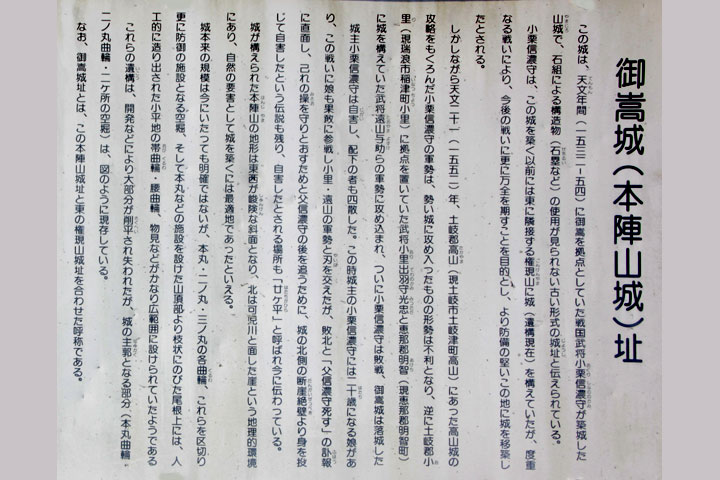 御嵩城（本陣山城）址
この城は、天文年間（一五三二－五四）に御嵩を拠点としていた戦国武将小栗信濃守が築城した
山城で、石組による構造物（石塁など）の使用が見られない古い形式の城址と伝えられている。
小栗信濃守は、この城を築く以前には東に隣接する権現山に城（遺構現在）を構えていたが、度重
なる戦いにより、今後の戦いに更に万全を期すことを目的とし、より防備の堅いこの地に城を移築し
たとされる。
しかしながら天文二十一（一五五二）年、土岐郡高山（現土岐市土岐津町高山）にあった高山城の
攻略をもくろんだ小栗信濃守の軍勢は、勢い城に攻め入つたものの形勢は不利となり、逆に土岐郡小
里（現瑞浪市稲津町小里）に拠点を置いていた武将小里出羽守光忠と恵那郡明智（現恵那郡明智町）
に城を構えていた武将遠山与助らの軍勢に攻め込まれ、ついに小栗信濃守は敗戦、御嵩城は落城した
城主小栗信濃守は自害し、配下の者も四散した。この時城主の小栗信濃守には二十歳になる娘があ
り、この戦いに娘も果敢に参戦し小里・遠山の軍勢と刃を交えたが、敗北と「父信濃守死す」の訃報
に直面し、己れの操を守りとおすためと父信濃守の後を追うために、城の北側の断崖絶壁より身を投
じて自害したという伝説も残り、自害したとされる場所も「廿ケ平」と呼ばれ今に伝わっている。
城が構えられた本陣山の地形は東西が峻険な斜面となり、北は可児川と面した崖という地理的環境
にあり、自然の要害として城を築くには最適地であったといえる。
城本来の規模は今にいたつても明確ではないが、本丸・二ノ丸・三ノ丸の各曲輪、これらを区切り
更に防御の施設となる空掘、そして本丸などの施設を設けた山頂部より枝状にのびた尾根上には、人
工的に造り出された小平地の帯曲輪・腰曲輪、物見などがかなり広範囲に設けられていたようである
これらの遺構は、開発などにより大部分が削平され失われたが、城の主郭となる部分（本丸曲輪
二ノ丸曲輪・二ケ所の空掘）は、図のように現存している。
なお、御嵩城址とは、この本陣山城址と東の権現山城址を合わせた呼称である。